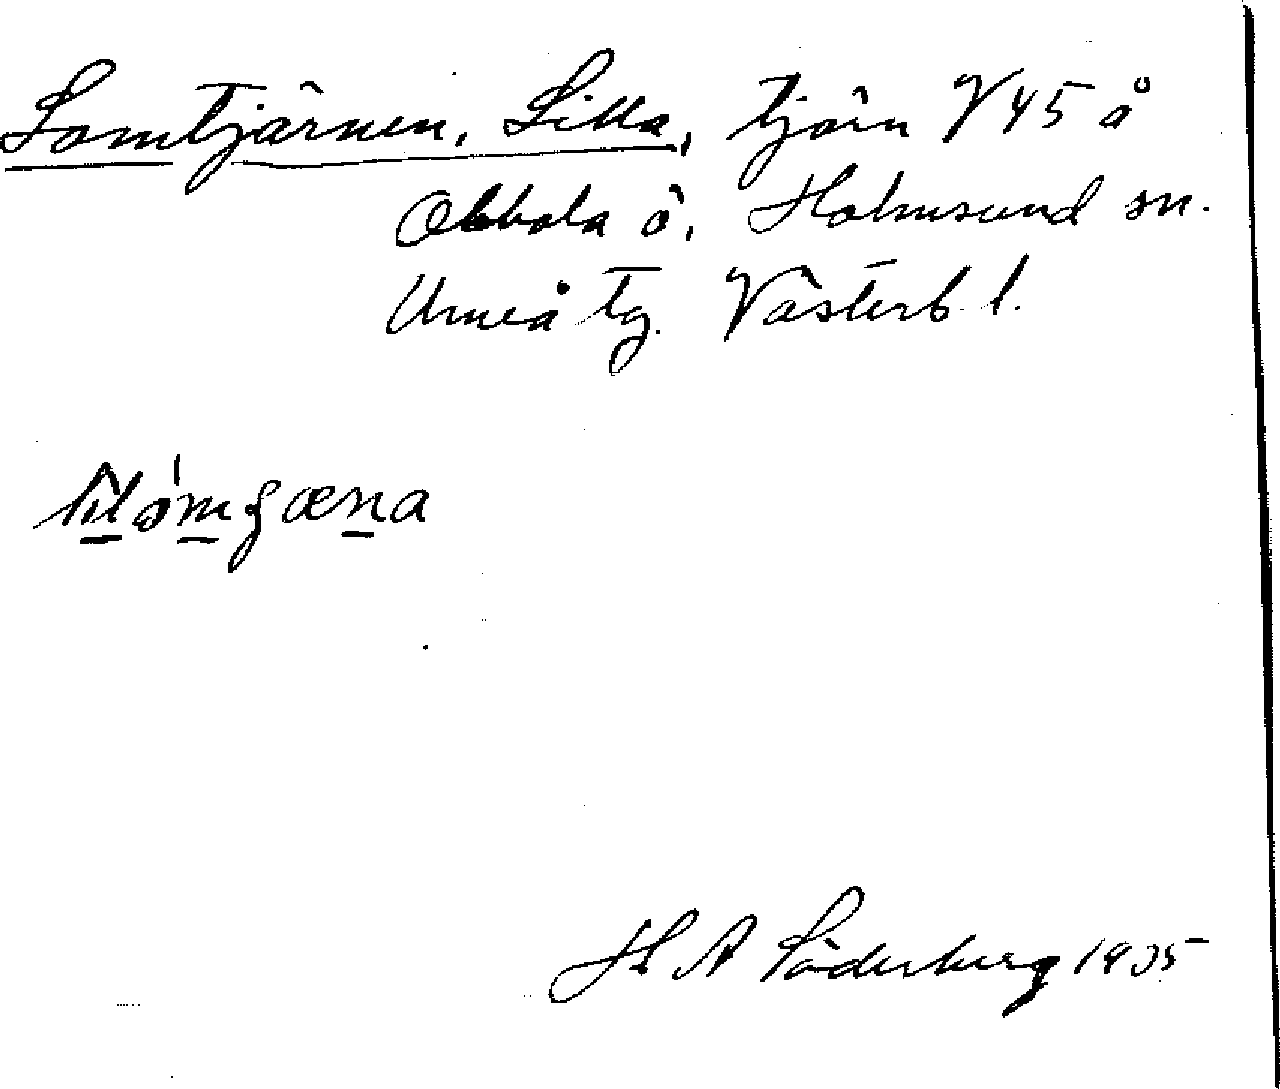 Lomtjärnen, Lilla, tjärn V 45 å
Obbola ö, Holmsund sn.
Umeå tg. Västerb. l.
H A Söderberg 1935